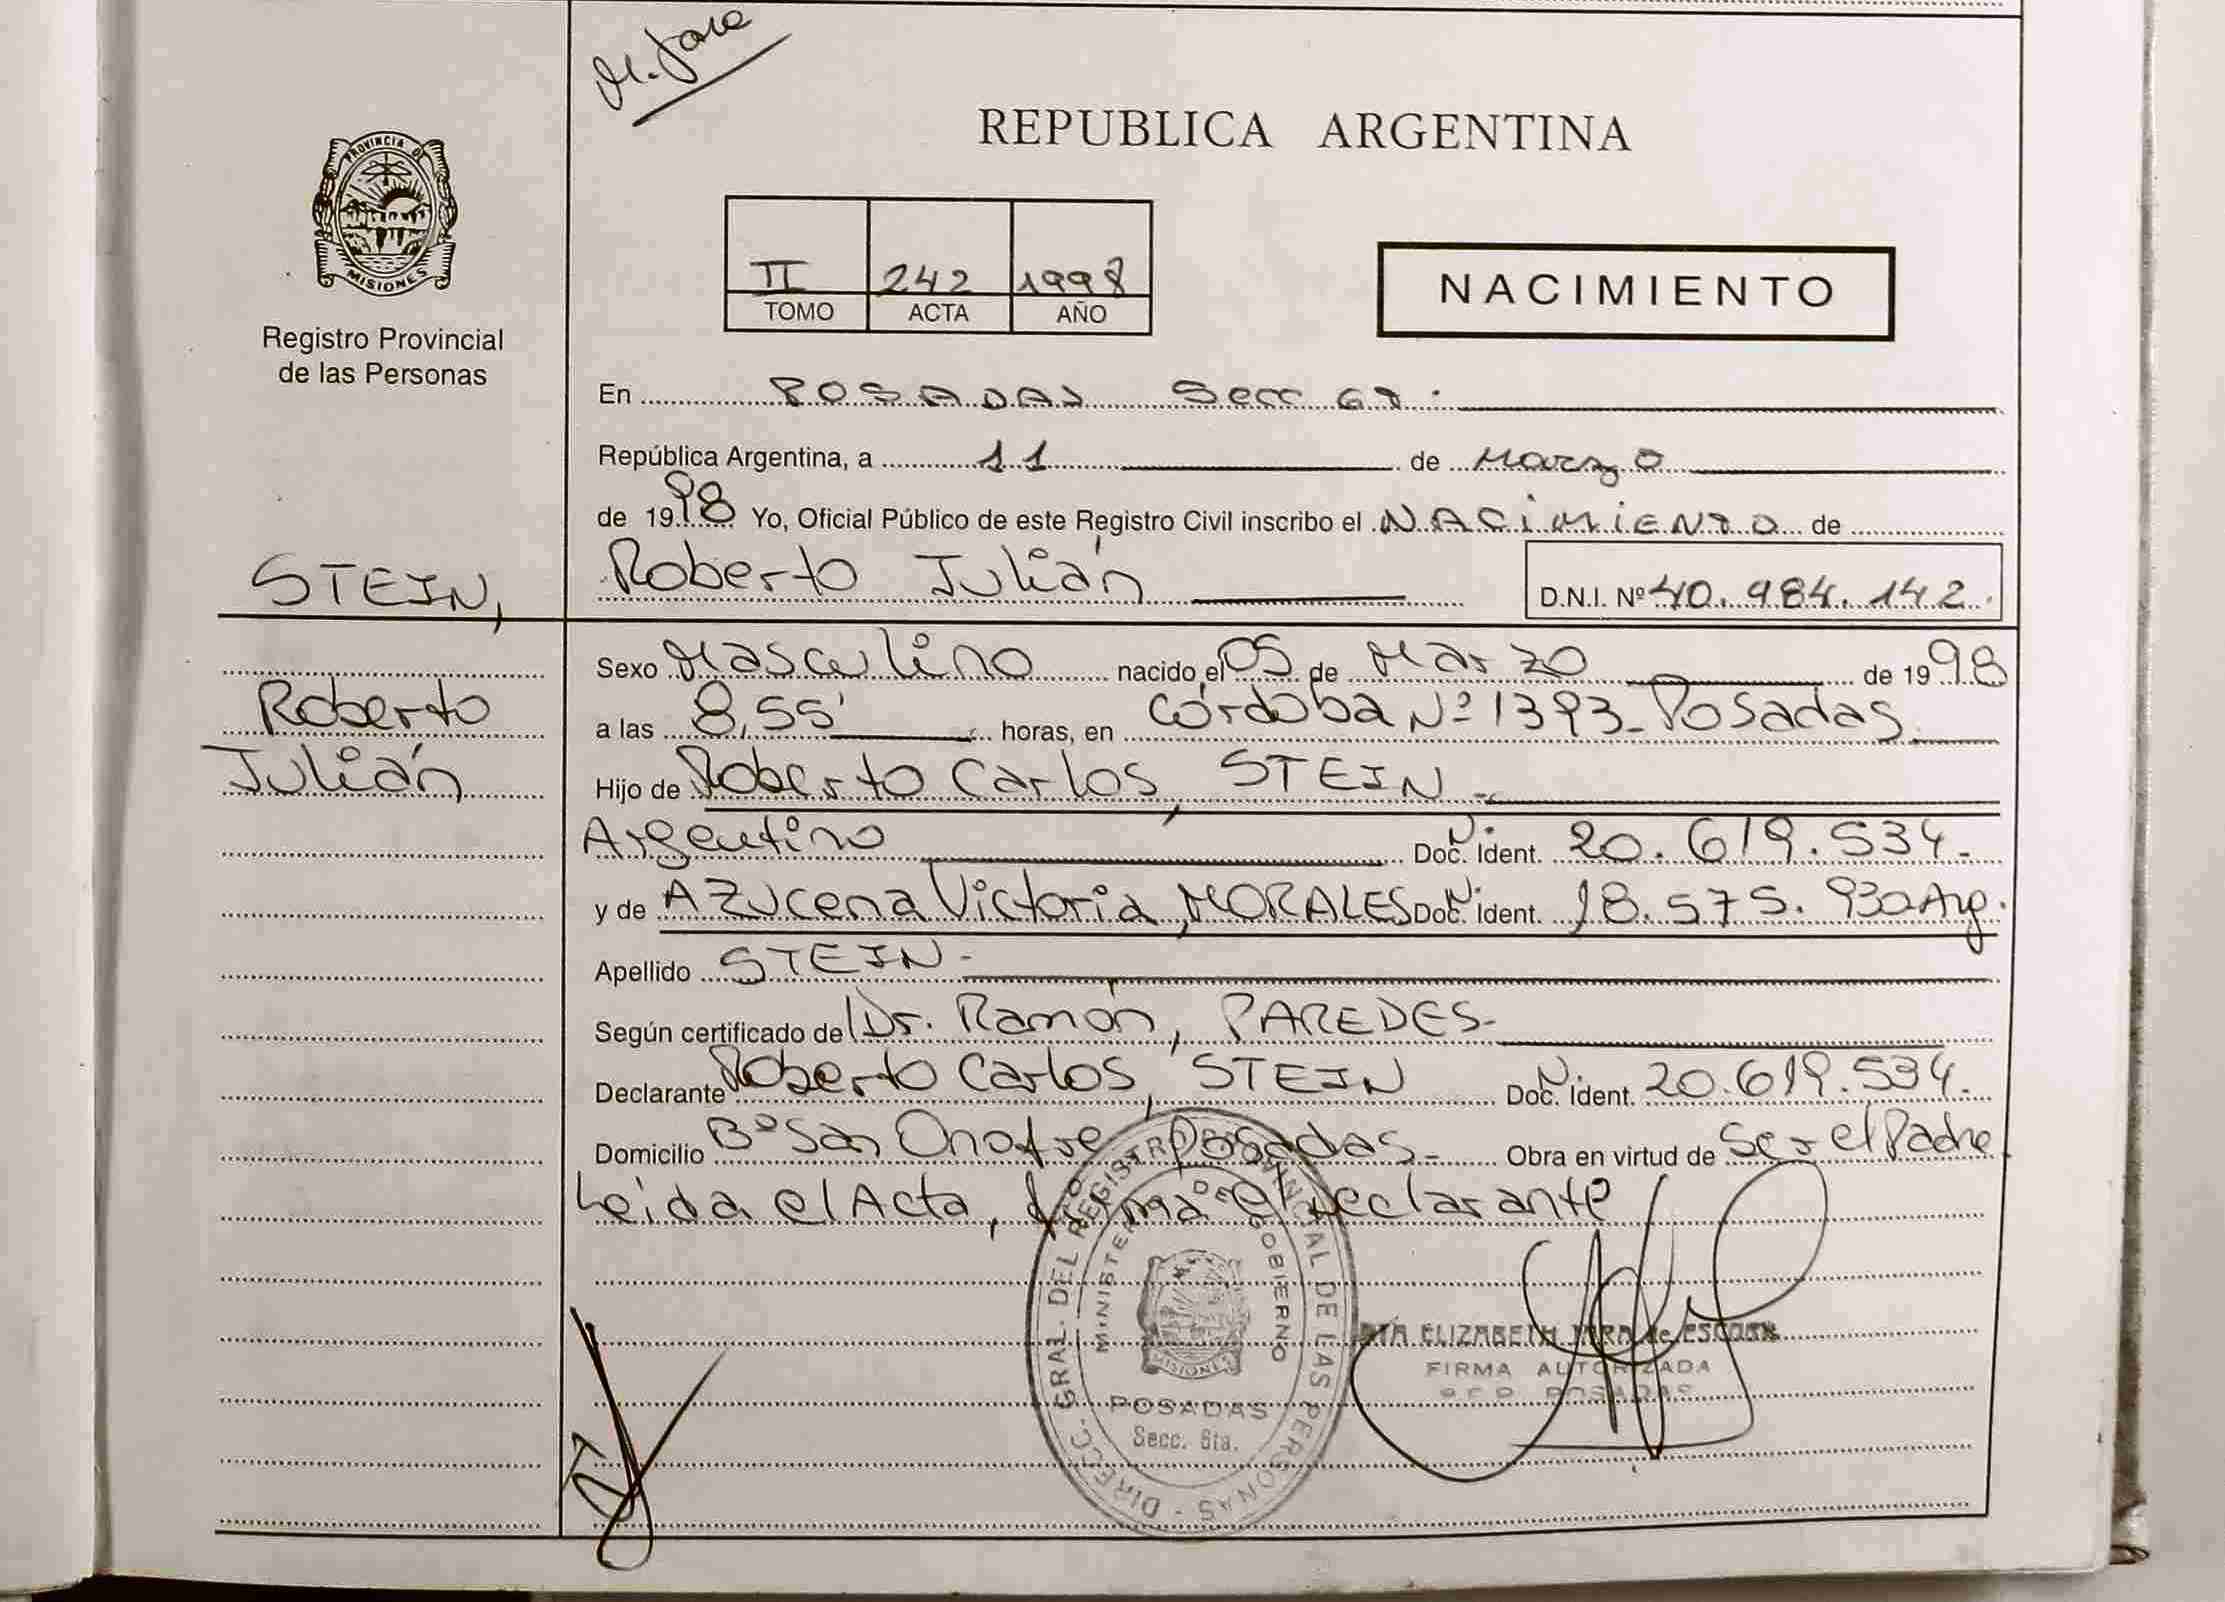 M. Jara
REPUBLICA ARGENTINA
PROVINCIA DE
MISIONES
Registro Provincial
de las Personas
II 242 1998
TOMO ACTA AÑO
NACIMIENTO
En POSADAS Secc 6ª.
República Argentina, a 11 de Marzo
de 1998 Yo, Oficial Público de este Registro Civil inscribo el NACIMIENTO de
STEIN, Roberto Julián D.N.I. Nº 40.984.142.
Sexo Masculino nacido el 05 de Marzo de 1998
Roberto
a las 8,55' horas, en Córdoba Nº 1393- Posadas
Julián
Hijo de Roberto Carlos, STEIN -
Argentino Doc. Ident. 20.619.534.-
y de AZUcena Victoria, MORALES Doc. Ident. 18.575.930 Arg.
Apellido STEIN-
Según certificado de Dr. Ramón, PAREDES-
Declarante Roberto Carlos, STEIN Doc. Ident. 20.619.534.-
Domicilio Bº San Onofre, Posadas.- Obra en virtud de Ser el Padre
Leida el Acta, firma el Declarante
DIREC. GRAL. DEL REGISTRO PROVINCIAL DE LAS PERSONAS -
MINISTERIO DE GOBIERNO
MISIONES
POSADAS
Secc. 6ta.
ELIZABETH JARA de
FIRMA AUTORIZADA
POSADAS